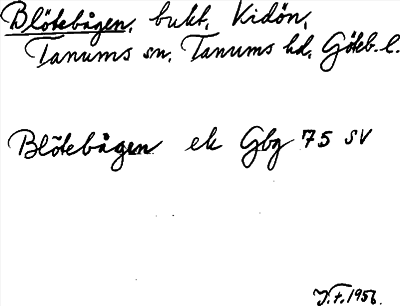 Blötebågen, bukt, Kidön,
Tanums sn, Tanums hd, Göteb. l.
Blötebågen ek Gbg 75 SV
J.F. 1956.